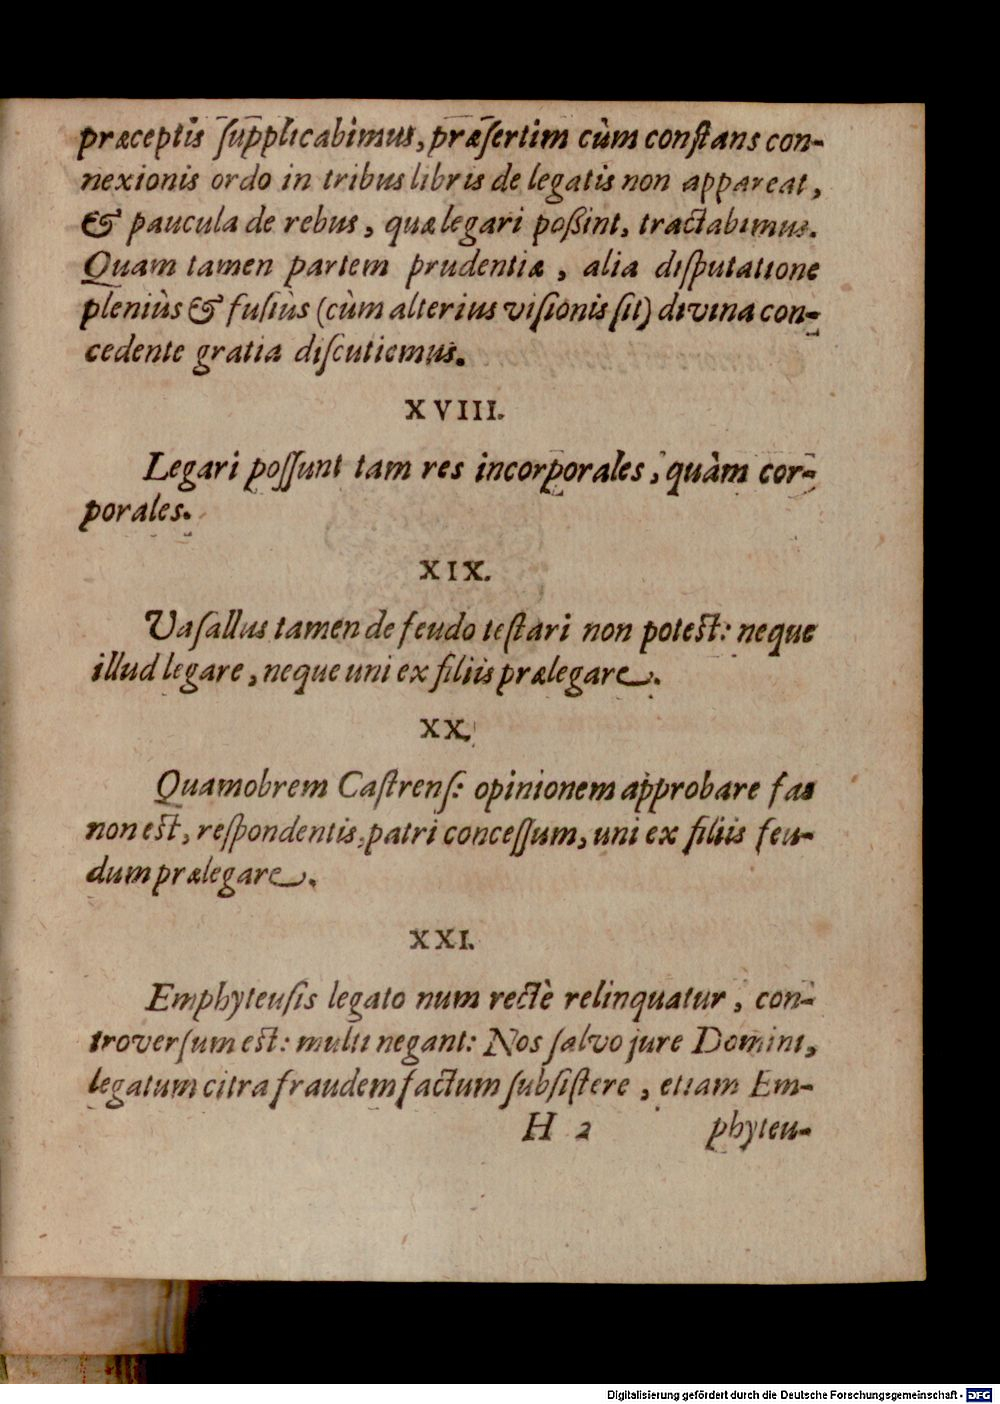 præceptis supplicabimus, præsertim cùm constans con-
nexionis ordo in tribus libris de legatis non appareat,
& paucula de rebus, quæ legari poßint, tractabimus.
Quam tamen partem prudentiæ, alia disputatione
pleniùs & fusiùs (cùm alterius visionis sit) divina con-
cedente gratia discutiemus.
XVIII.
Legari possunt tam res incorporales, quàm cor-
porales.
XIX.
Vasallus tamen de feudo testari non potest: neque
illud legare, neque uni ex filiis prælegare.
XX.
Quamobrem Castrens: opinionem approbare fas
non est, respondentis, patri concessum, uni ex filiis feu-
dum prælegare.
XXI.
Emphyteusis legato num rectè relinquatur, con-
troversum est: multi negant: Nos salvo jure Domini,
legatum citra fraudem factum subsistere, etiam Em-
H 2 phyteu-
Digitalisierung gefördert durch die Deutsche Forschungsgemeinschaft - DFG